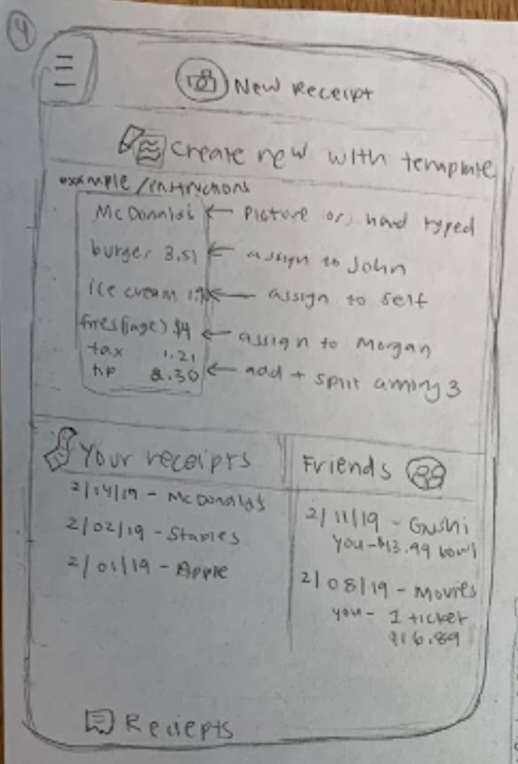 4
New Receipt
Create new with template
example/instructions
McDonnlds ← Picture or, hand typed
burger 3.51 ← assign to John
ice cream ← assign to self
fries(large) $4 ← assign to Morgan
tax 1.21
tip 2.30 ← add + split among 3
Your receipts
2/14/19 - McDonalds
2/02/19 - Staples
2/01/19 - Apple
Friends
2/11/19 - Gushi
you - $13.99 bowl
2/08/19 - Movies
you - 1 ticket
$16.89
Reciepts